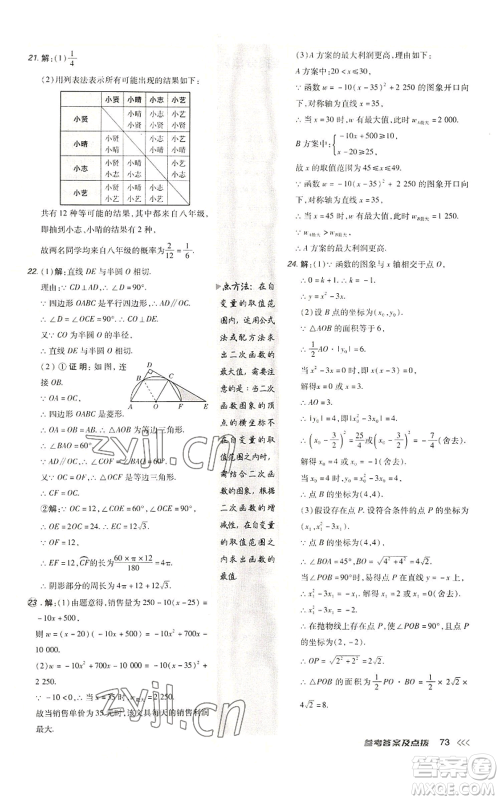 21. 解:(1)1/4
(2)用列表法表示所有可能出现的结果如下:
小贤 小晴 小志 小艺
小贤 小贤 小晴 小贤 小志 小贤 小艺
小晴 小晴 小贤 小晴 小志 小晴 小艺
小志 小志 小贤 小志 小晴 小志 小艺
小艺 小艺 小贤 小艺 小晴 小艺 小志
共有 12 种等可能的结果,其中来自八年级,
即抽到小志、小晴的有 2 种,
故两名同学均来自八年级的概率为 2/12 = 1/6.
22. 解:(1)解:直线 DE 与半圆 O 相切.
理由:∵ CD⊥AD,∴ ∠D=90°.
∵ 四边形 OABC 是平行四边形,∴ AD∥OC.
∴ ∠D=∠OCE=90°,∴ CO⊥DE.
又∵ CO 为半圆 O 的半径,
∴ 直线 DE 与半圆 O 相切.
(2)① 证明:如图,连
接 OB.
∵ OA=OC,
∴ 四边形 OABC 为菱形.
又∵ OA=OB,
∴ △OAB 为等边三角形.
∴ ∠BAO=60°.
又∵ AD∥OC,∴ ∠COF=∠BAO=60°.
又∵ OC=OF,∴ △OCF 是等边三角形.
∴ CF=OC.
②解:∵ OC=12,∠OCE=90°,∠COE=60°,
∴ OE=24.
∵ OF=12,
∴ EF=12,CF=60×π×12/180=4π.
∴ 阴影部分的周长为
23. 解:(1)由题意得,销售量为 250-10(x-25)=
-10x+500,
则 w=(x-20)(-10x+500)=-10x²+700x-
10 000.
(2)w=-10x²+700x-10 000=-10(x-35)²+
2 250.
∵ -10<0,∴ 当 x=35 时,w最大=2 250.
故当销售单价为 35 元时,该文具每天的销售利润
最大.
点方法:在自
变量的取值范
围内,运用公式
法或配方法求
出二次函数的
最大值,需要注
意的是:当二次
函数图象的顶
点的横坐标不
在自变量的取
值范围之内时,
需结合二次函
数图象的增
减性,在自变量
的取值范围之
内来求出函数
的最值.
(3)A 方案的最大利润更高.理由如下:
A 方案中:20<x≤30,
∵ 函数 w=-10(x-35)²+2 250 的图象开口向
下,对称轴为直线 x=35,
∴ 当 x=30 时,w 有最大值,此时 wA最大=2 000.
B 方案中:{-10x+500≥10, x-20≥25.
故 x 的取值范围为 45≤x≤49.
∵ 函数 w=-10(x-35)²+2 250 的图象开口向
下,对称轴为直线 x=35,
∴ 当 x=45 时,w 有最大值,此时 wB最大=1 250.
∵ wA最大>wB最大,
∴ A 方案的最大利润更高.
24. 解:(1)∵ 函数的图象与 x 轴相交于点 O,
∴ 0=k+1.∴ k=-1.
∴ y=x²-3x.
(2)设 B 点的坐标为(x₀,y₀).
∵ △AOB 的面积等于 6,
∴ 1/2 AO·|y₀|=6.
当 x²-3x=0 时,x(x-3)=0,解得 x=0 或 3.
∴ AO=3.
∴ |y₀|=4,即 |x₀²-3x₀|=4.
解得 x₀=4 或 x₀=-1(舍去).
当 x₀=4 时,y₀=x₀²-3x₀=4.
∴ 点 B 的坐标为(4,4).
(3)假设存在点 P.设符合条件的点 P 的坐标为
∵ 点 B 的坐标为(4,4),
∴ ∠BOA=45°,BO=√(4²+4²)=4√2.
当∠POB=90°时,易得直线 PO 的表达式为 y=-x,
∴ 在抛物线上存在点 P,使∠POB=90°,坐标为
(2,-2).
∴ OP=√(2²+2²)=2√2.
∴ △POB 的面积为 1/2 PO·BO=1/2×2√2×
4√2=8.
zyjl.cn
zyjl.cn
参考答案及点拨 73